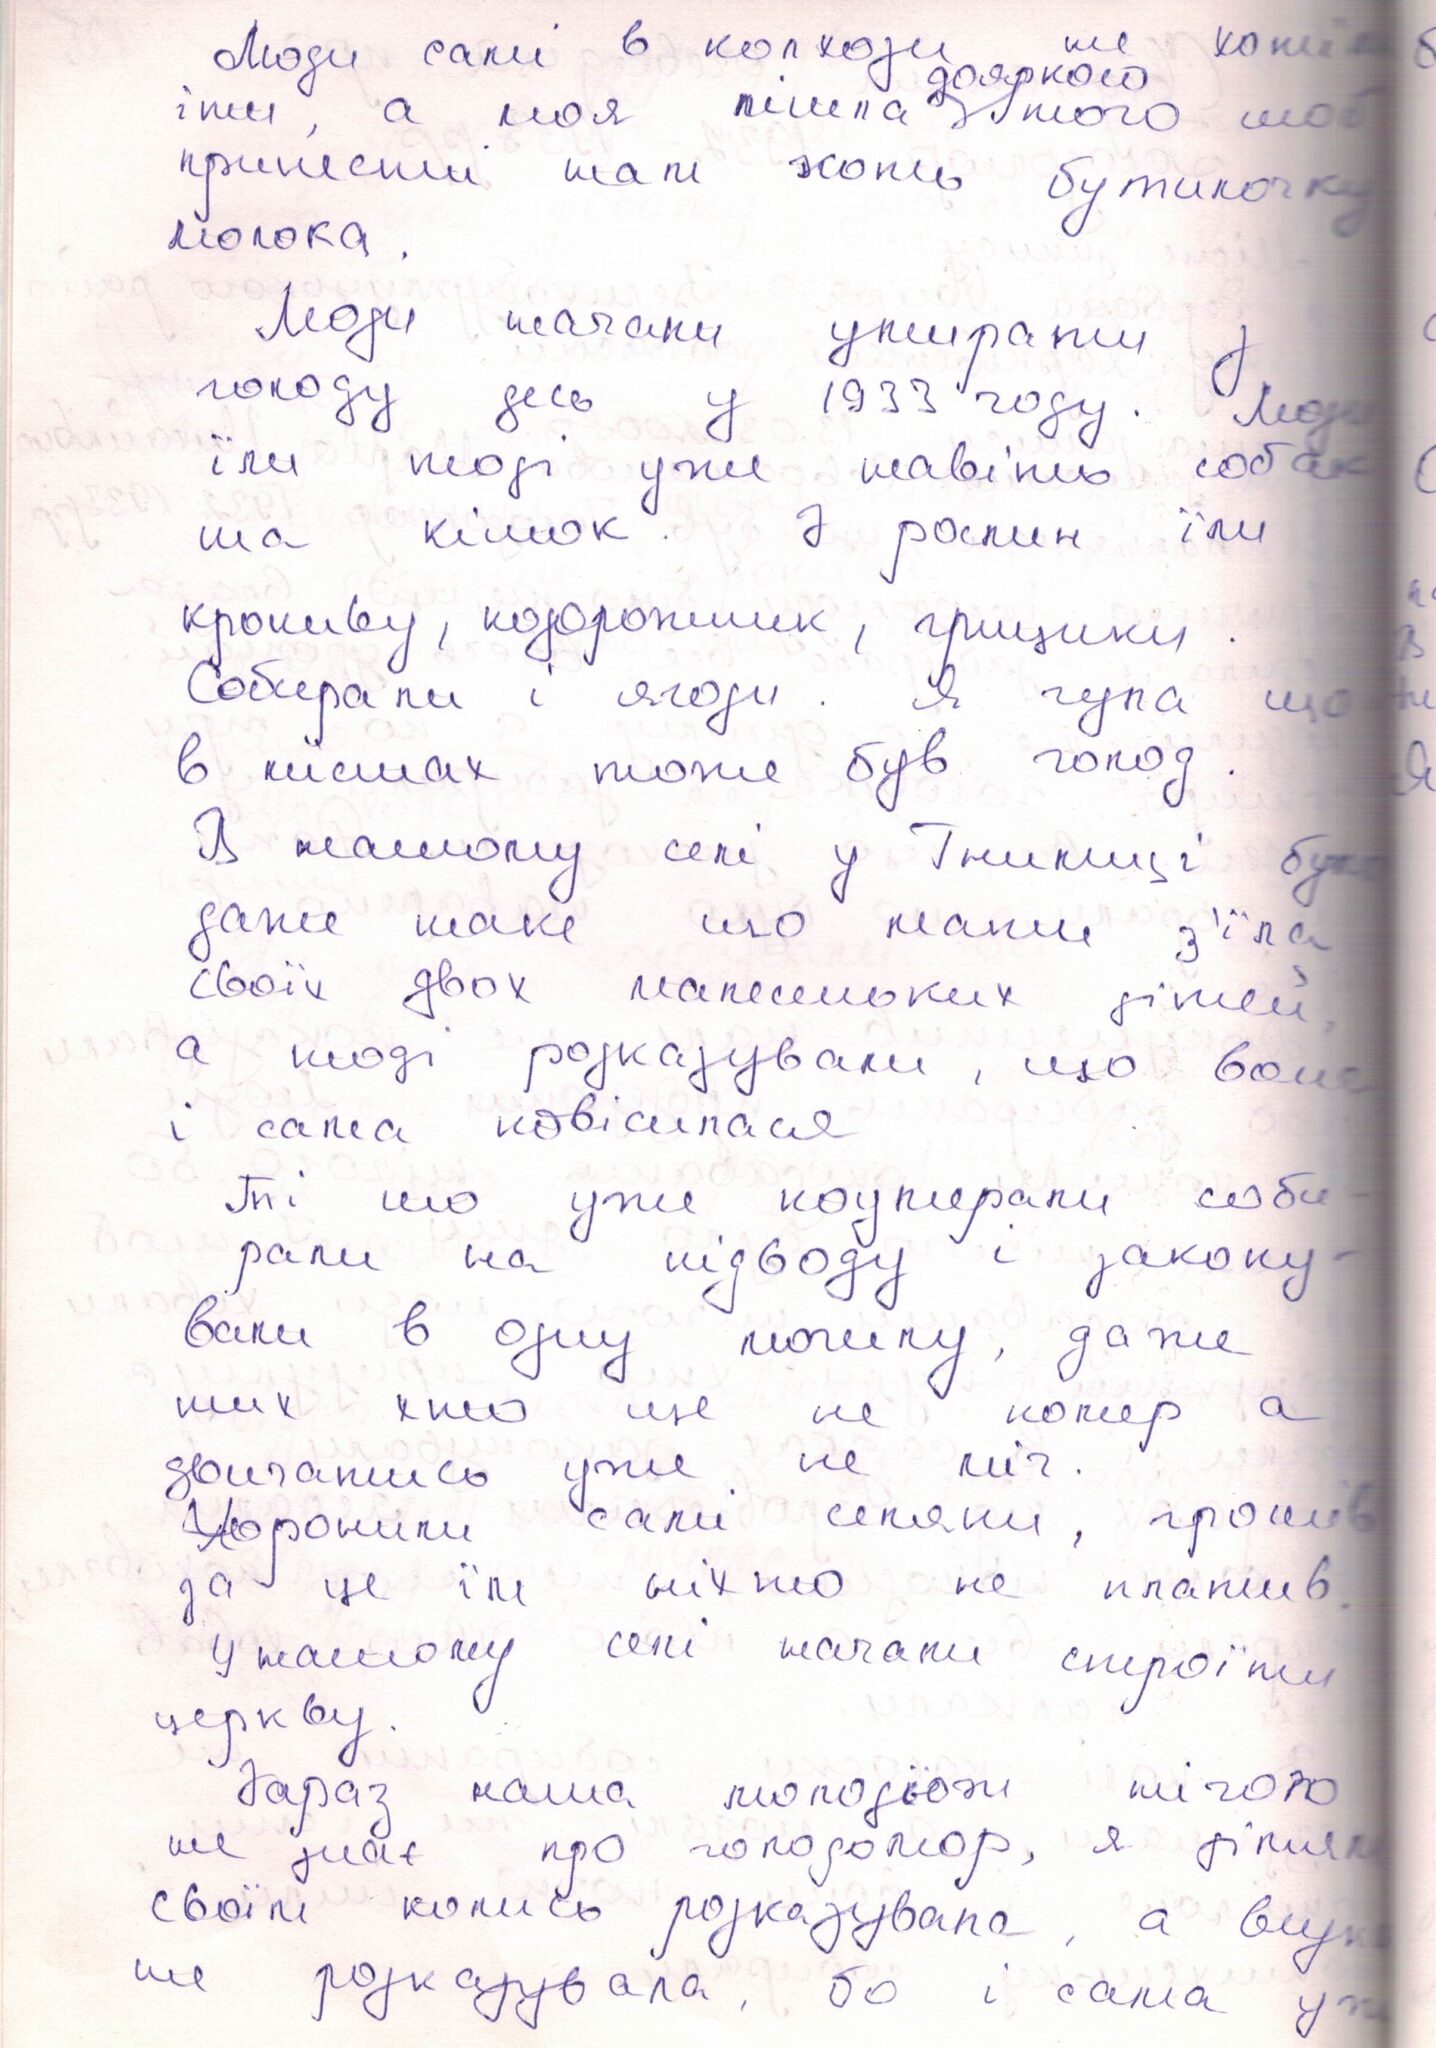 Люди самі в колхози не хотіли
іти, а моя пішла дояркою з того щоб
принести нам хоть бутилочку
молока.
Люди начали умирати з
голоду десь у 1933 году. Люди
їли тоді уже навіть собак
та кішок. З рослин їли
кропиву, подорожник, грицики.
Собирали і ягоди. Я чула що
в містах тоже був голод.
В нашому селі у Гнилиці було
даже таке що мати з'їла
своїх двох малесеньких дітей,
а тоді розказували, що вона
і сама повісилася
Ті що уже поумерали соби-
рали на підводу і закопу-
вали в одну могилу, даже
тих хто ще не помер а
двигатись уже не міг.
Хоронили самі селяни, грошів
за це їм ніхто не платив.
У нашому селі начали строїти
церкву.
Зараз наша молодьож нічого
не знає про голодомор, я дітям
своїм колись розказувала, а внукам
не розказувала, бо і сама уже